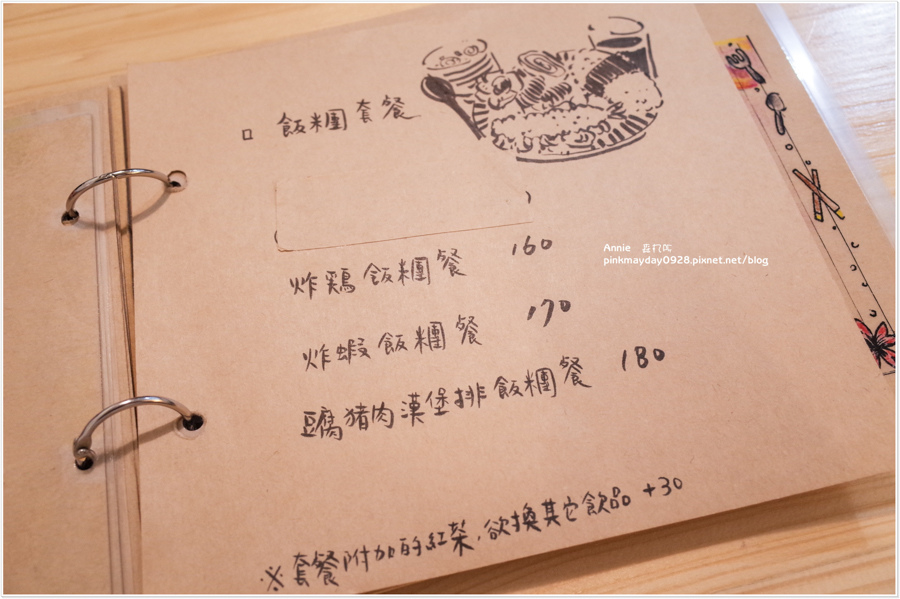 □ 飯糰套餐
炸鶏飯糰餐 160
炸蝦飯糰餐 170
豆腐猪肉漢堡排飯糰餐 180
※套餐附加的紅茶,欲換其它飲品 +30
Annie
pinkmayday0928.pixnet.net/blog